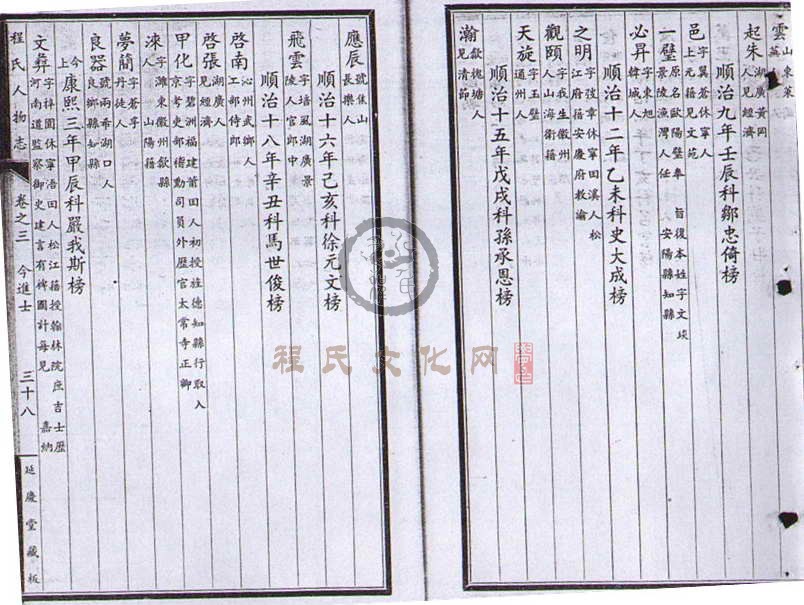 雲 山東萊
起朱 湖廣黃岡人見經濟
順治九年壬辰科鄒忠倚榜
邑 字翼蒼休寧人上元籍見文苑
一璧 原名歐陽璧奉 旨復本姓字文琰景陵漁灣人任 安陽縣知縣
必昇 字東旭韓城人
順治十二年乙未科史大成榜
之明 字弢章休寧田溪人松江府籍安慶府教諭
觀頤 字我生徽州人山海衛籍
天旋 字玉璧通州人
順治十五年戊戌科孫承恩榜
瀚 歙槐塘人見清節
應辰 號焦山長樂人
順治十六年己亥科徐元文榜
飛雲 字培風湖廣景陵人官郎中
順治十八年辛丑科馬世俊榜
啓南 沁州武鄉人工部侍郎
啓張 湖廣人見經濟
甲化 字碧洲福建莆田人初授旌德知縣行取入京考吏部稽勳司員外歷官太常寺正卿
涑 字濰東徽州歙縣人 山陽籍
夢簡 字蒼孚丹徒人
良器 號兩希湖口人良鄉縣知縣
今上 康熙三年甲辰科嚴我斯榜
文彝 字梓園休寧浯田人松江籍授翰林院庶吉士歷河南道監察御史建言有裨國計每見 嘉納
程氏人物志 卷之三 今進士 三十八 延慶堂藏板
程氏文化网